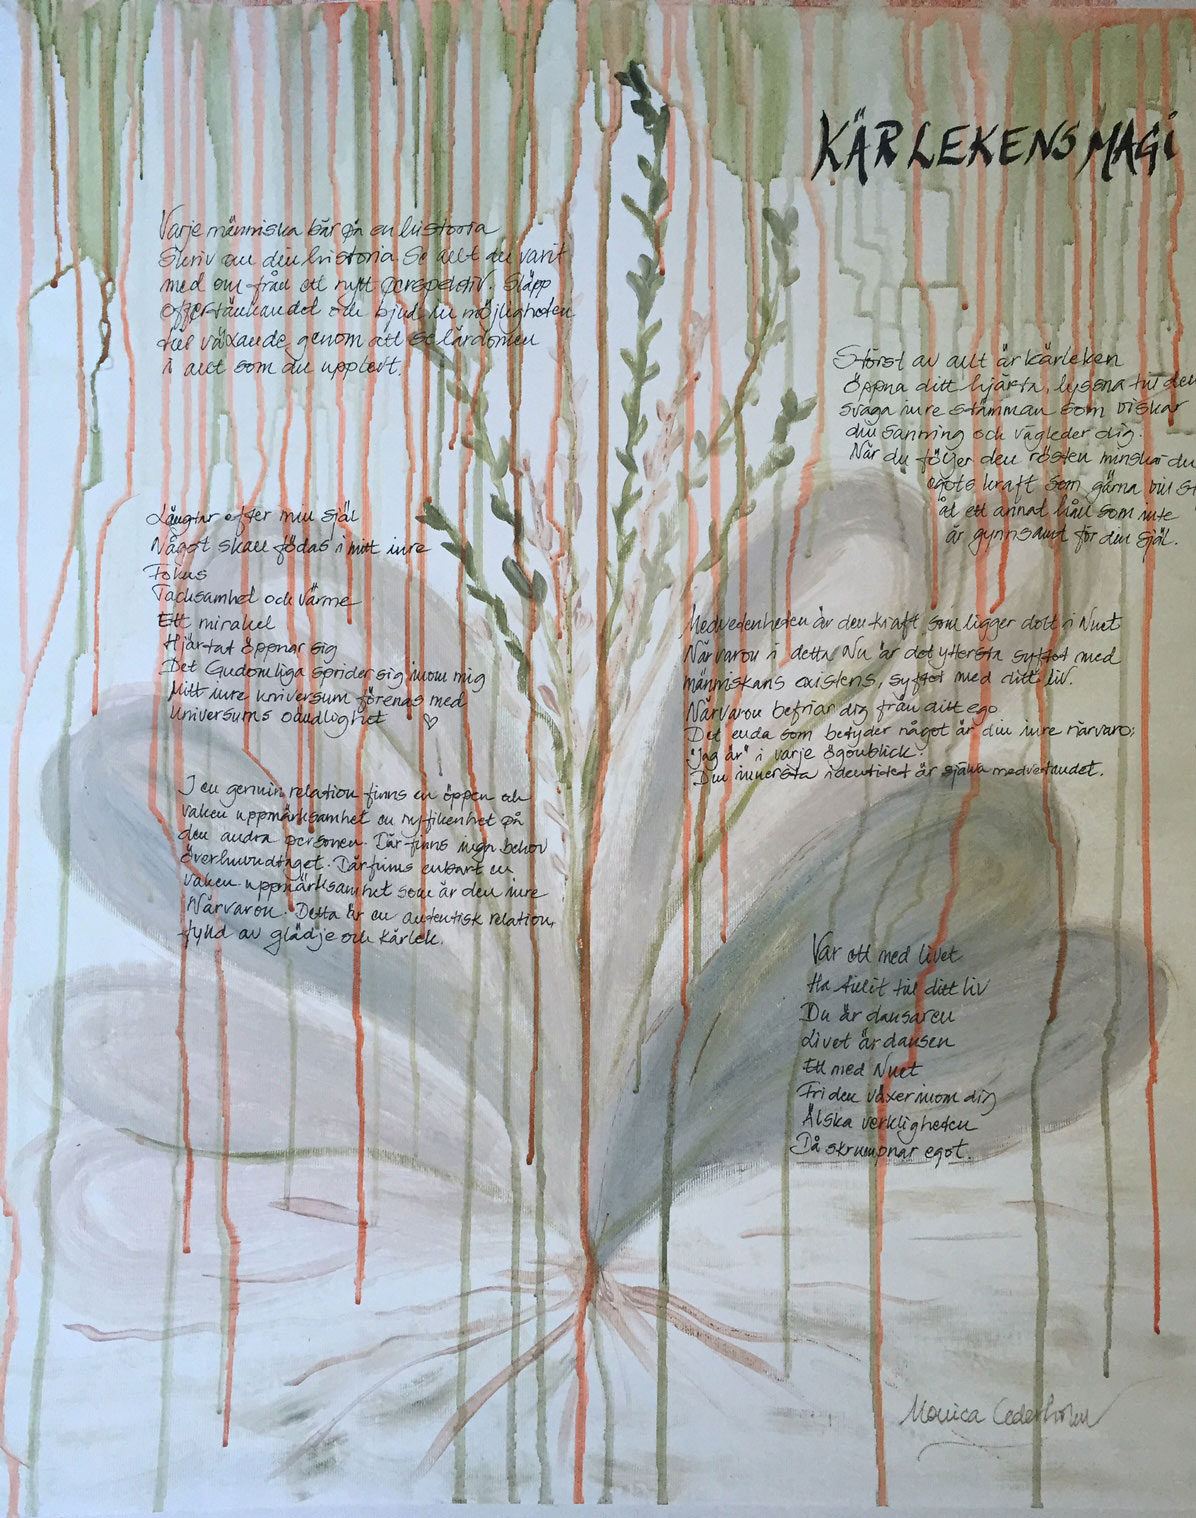 KÄRLEKENS MAGI
Varje människa bär på en historia
Skriv om din historia. Se allt du varit
med om från ett nytt perspektiv. Släpp
offertänkandet och bjud in möjligheten
till växande genom att se lärdomen
i allt som du upplevt.
Störst av allt är kärleken
Öppna ditt hjärta, lyssna till den
svaga inre stämman som viskar
din sanning och vägleder dig.
När du följer den rösten minskar du
egots kraft som gärna vill
åt ett annat håll som inte
är gynnsamt för din själ.
Längtar efter min själ
Något skall födas i mitt inre
Fokus
Tacksamhet och värme
Ett mirakel
Hjärtat öppnar sig
Det Gudomliga sprider sig inom mig
Mitt inre universum förenas med
Universums oändlighet ♡
Medvetenheten är den kraft som ligger dolt i Nuet
Närvaron i detta Nu är det yttersta syftet med
människans existens, syftet med ditt liv.
Närvaron befriar dig från ditt ego
Det enda som betyder något är din inre närvaro;
"Jag är" i varje ögonblick.
Din innersta identitet är själva medvetandet.
I en genuin relation finns en öppen och
vaken uppmärksamhet en nyfikenhet på
den andra personen. Där finns inga behov
överhuvudtaget. Där finns enbart en
vaken uppmärksamhet som är den inre
Närvaron. Detta är en autentisk relation,
fylld av glädje och kärlek.
Var ett med livet
Ha tillit till ditt liv
Du är dansaren
Livet är dansen
Ett med Nuet
Friden växer inom dig
Älska verkligheten
Då skrumpnar egot.
Monica Cederholm